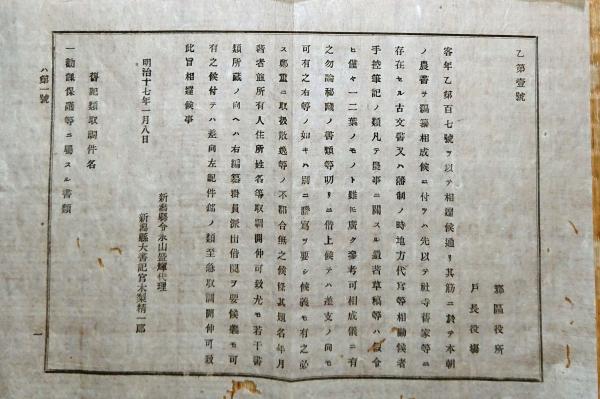 乙第壹號
郡區役所
戸長役場
客年乙第百七號ヲ以テ相達候通リ其筋ニ於テ本朝
ノ農書ヲ編纂相成候ニ付テハ先以テ社寺舊家等ニ
存在セル古文書又ハ藩制ノ時地方代官等相勤候者
手控筆記ノ類凡テ農事ニ關スル遺著草稿等ハ假令
ヒ僅々一二葉ノモノト雖モ廣ク參考可相成儀ニ有
之勿論秘藏ノ書類等叨リニ借上候テハ差支ノ向モ
可有之右等ノ如キハ別ニ謄寫ヲ要シ候義モ有之必
ス鄭重ニ取扱散逸等ノ不都合無之候條其題名年月
著者並所有人住所姓名等取調開伸可致尤モ若干書
類所藏ノ向ヘハ右編纂掛員派出借閲ヲ要候義モ可
有之候付テハ差向左記件部ノ類至急取調開伸可致
此旨相達候事
明治十七年一月八日
新潟縣令永山盛輝代理
新潟縣大書記官木梨精一郎
舊記類取調件名
一勸課保護等ニ屬スル書類
ハ第一號
一